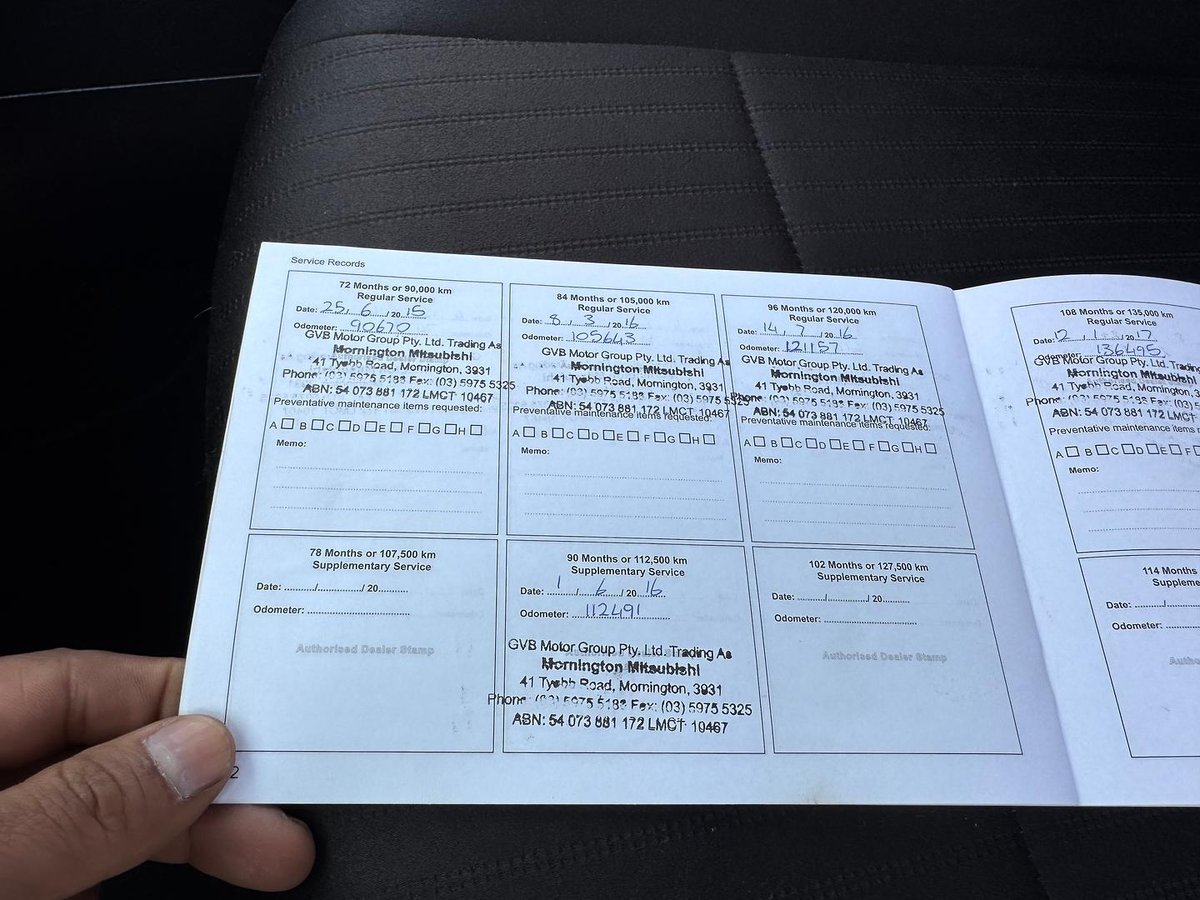 Service Records
72 Months or 90,000 km
Regular Service
Date: 25 / 6 / 20 15
Odometer: 90670
GVB Motor Group Pty. Ltd. Trading As
Mornington Mitsubishi
41 Tyabb Road, Mornington, 3931
Phone: (03) 5975 5188 Fax: (03) 5975 5325
ABN: 54 073 881 172 LMCT 10467
Preventative maintenance items requested:
A B C D E F G H
Memo:
84 Months or 105,000 km
Regular Service
Date: 8 / 3 / 20 16
Odometer: 105643
GVB Motor Group Pty. Ltd. Trading As
Mornington Mitsubishi
41 Tyabb Road, Mornington, 3931
Phone: (03) 5975 5188 Fax: (03) 5975 5325
ABN: 54 073 881 172 LMCT 10467
Preventative maintenance items requested:
A B C D E F G H
Memo:
96 Months or 120,000 km
Regular Service
Date: 14 / 7 / 20 16
Odometer: 121157
GVB Motor Group Pty. Ltd. Trading As
Mornington Mitsubishi
41 Tyabb Road, Mornington, 3931
Phone: (03) 5975 5188 Fax: (03) 5975 5325
ABN: 54 073 881 172 LMCT 10467
Preventative maintenance items requested:
A B C D E F G H
Memo:
108 Months or 135,000 km
Regular Service
Date: 12 / 1 / 20 17
Odometer: 136495
GVB Motor Group Pty. Ltd. Trading
Mornington Mitsubishi
41 Tyabb Road, Mornington, 3
Phone: (03) 5975 5188 Fax: (03) 5975
ABN: 54 073 881 172 LMCT
Preventative maintenance items r
A B C D E F
Memo:
78 Months or 107,500 km
Supplementary Service
Date: / / 20
Odometer:
Authorised Dealer Stamp
90 Months or 112,500 km
Supplementary Service
Date: 1 / 6 / 20 16
Odometer: 112491
GVB Motor Group Pty. Ltd. Trading As
Mornington Mitsubishi
41 Tyabb Road, Mornington, 3931
Phone: (03) 5975 5188 Fax: (03) 5975 5325
ABN: 54 073 881 172 LMCT 10467
102 Months or 127,500 km
Supplementary Service
Date: / / 20
Odometer:
Authorised Dealer Stamp
114 Months
Suppleme
Date: /
Odometer:
Autho
2